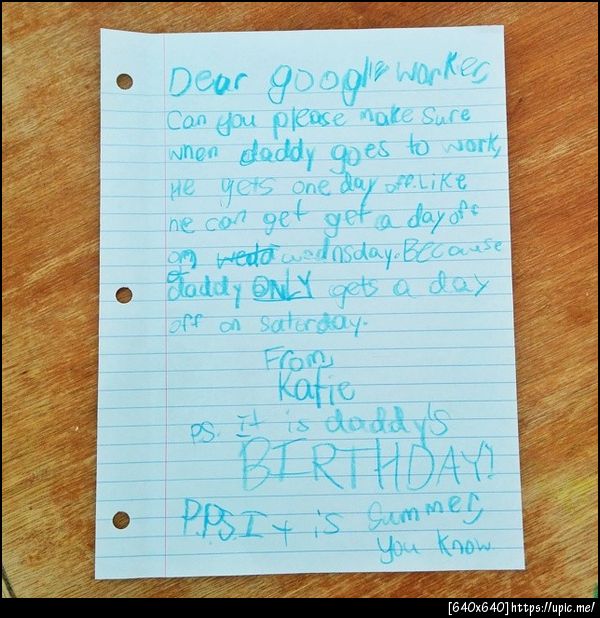 Dear google worker,
Can you please make sure
when daddy goes to work,
He gets one day off. Like
he can get get a day off
on wednsday. Because
daddy ONLY gets a day
off on saturday.
From,
Katie
Ps. It is daddy's
BIRTHDAY!
P.P.S It is summer,
you know
[640x640]https://upic.me/